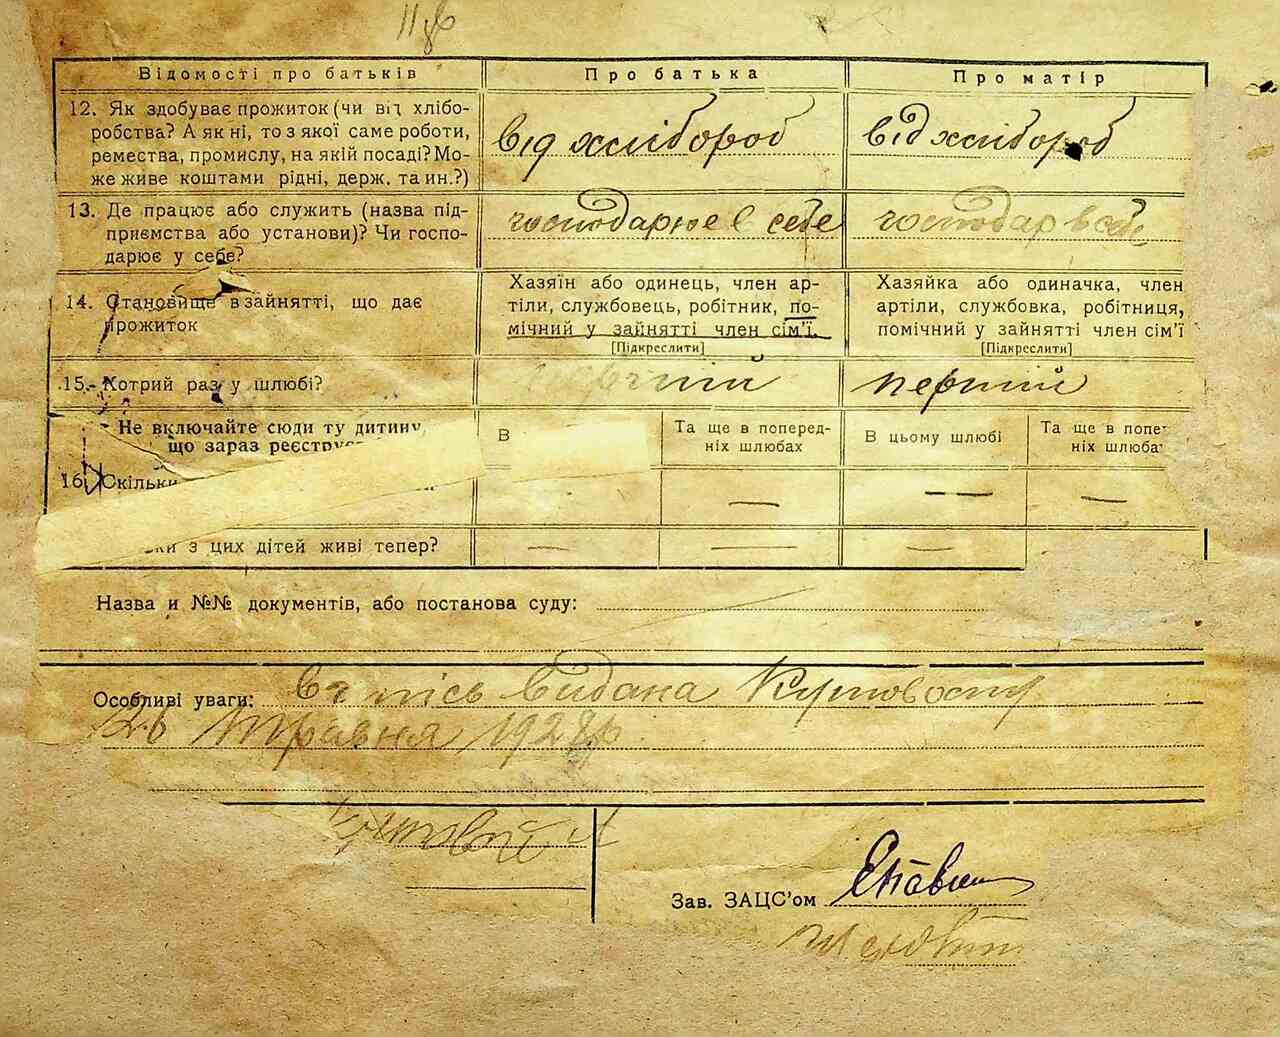 Відомості про батьків Про батька Про матір
12. Як здобуває прожиток (чи від хлібо-
робства? А як ні, то з якої саме роботи,
ремества, промислу, на якій посаді? Мо-
же живе коштами рідні, держ. та ин.?)
від хлібороб від хлібороб
13. Де працює або служить (назва під-
приємства або установи)? Чи госпо-
дарює у себе?
господарює в себе господар в себе
14. Становище в зайнятті, що дає
прожиток
Хазяїн або одинець, член ар-
тіли, службовець, робітник, по-
мічний у зайнятті член сім'ї.
[Підкреслити]
Хазяйка або одиначка, член
артіли, службовка, робітниця,
помічний у зайнятті член сім'ї
[Підкреслити]
15. Котрий раз у шлюбі? перший
Не включайте сюди ту дитину,
що зараз реєстру
В
Та ще в поперед-
ніх шлюбах
В цьому шлюбі
Та ще в попе
ніх шлюба
16. Скільки — — —
ки з цих дітей живі тепер? — — —
Назва и №№ документів, або постанова суду:
Особливі уваги: видана
26 травня 1928 р
Зав. ЗАЦС'ом